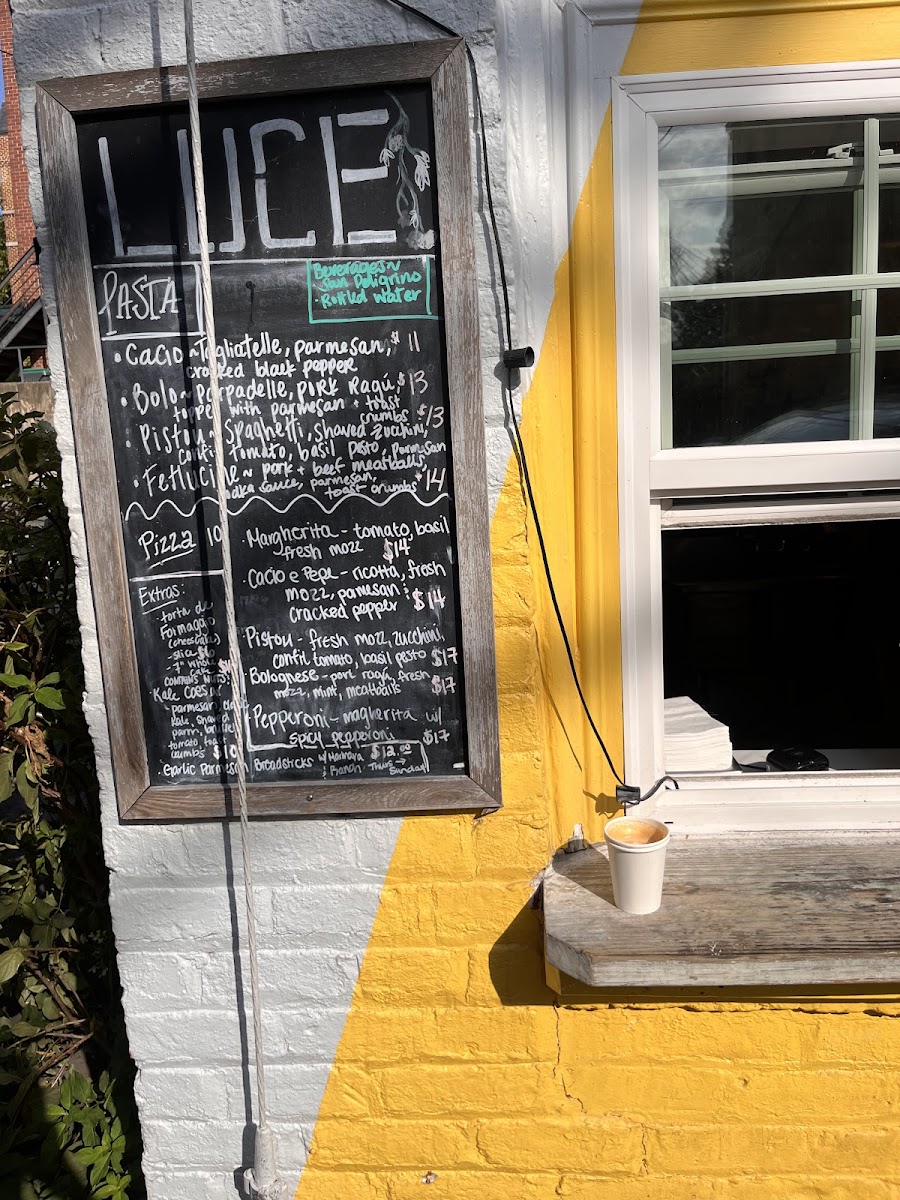 LUCE
PASTA
Beverages~
· San Peligrino
· Bottled water
· Cacio ~ Tagliatelle, parmesan, $11
cracked black pepper
· Bolo ~ Parpadelle, pork Ragú, $13
topped with parmesan + toast
crumbs
· Pistou ~ Spaghetti, shaved zucchini, $13
confit tomato, basil pisto, parmesan
· Fettucine ~ pork + beef meatballs,
vodka sauce, parmesan,
toast crumbs $14
Pizza 10
· Margherita - tomato, basil
fresh mozz $14
· Cacio e Pepe - ricotta, fresh
mozz, parmesan +
cracked pepper $14
· Pistou - fresh mozz, zucchini,
confit tomato, basil pesto $17
· Bolognese - pork ragú, fresh
mozz, mint, meatballs $17
· Pepperoni - magherita w/
spicy pepperoni $17
Extras:
· torta de
Formaggio
(cheesecake)
- slice $10
- 7" whole
cake
CONTAINS NUTS
· Kale Caesar
- parmesan
kale, shaved
parm,
tomato, toast
crumbs $10
· Garlic Parmesan Breadsticks w/ Marinara $12.00
+ Ranch Thurs →
Sunday